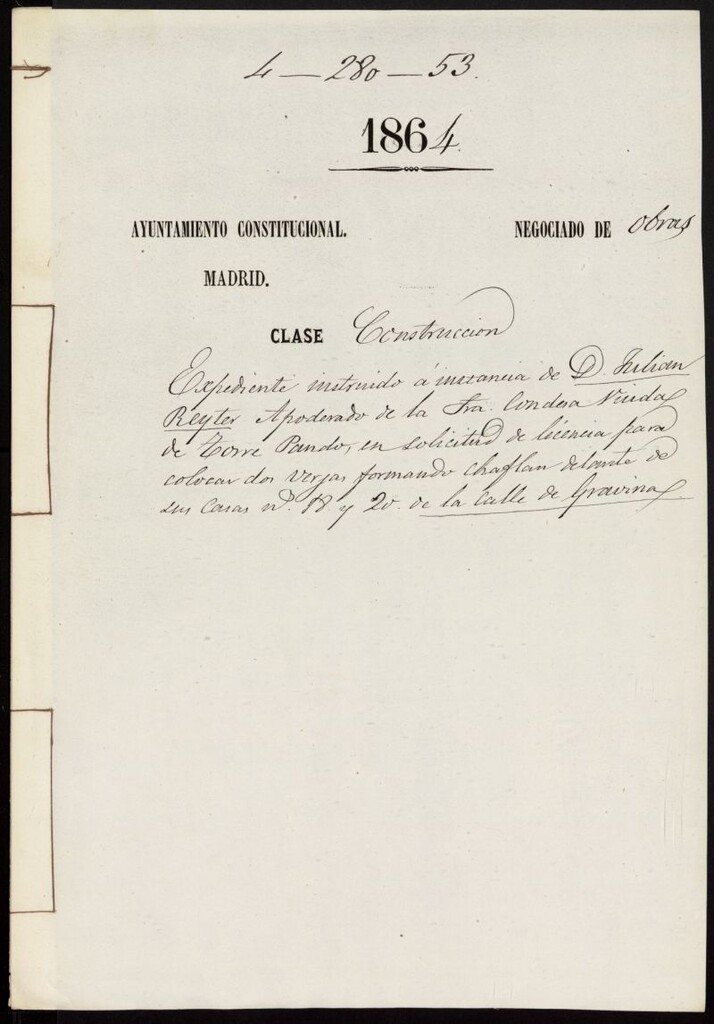 4 — 280 — 53.
1864
AYUNTAMIENTO CONSTITUCIONAL. NEGOCIADO DE obras
MADRID.
CLASE Construccion
Expediente instruido á instancia de D. Julian
Reyter Apoderado de la Sra. Condesa Viuda
de Torre Pando, en solicitud de licencia para
colocar dos verjas formando chaflan delante de
sus casas nº. 18. y 20. de la Calle de Gravina